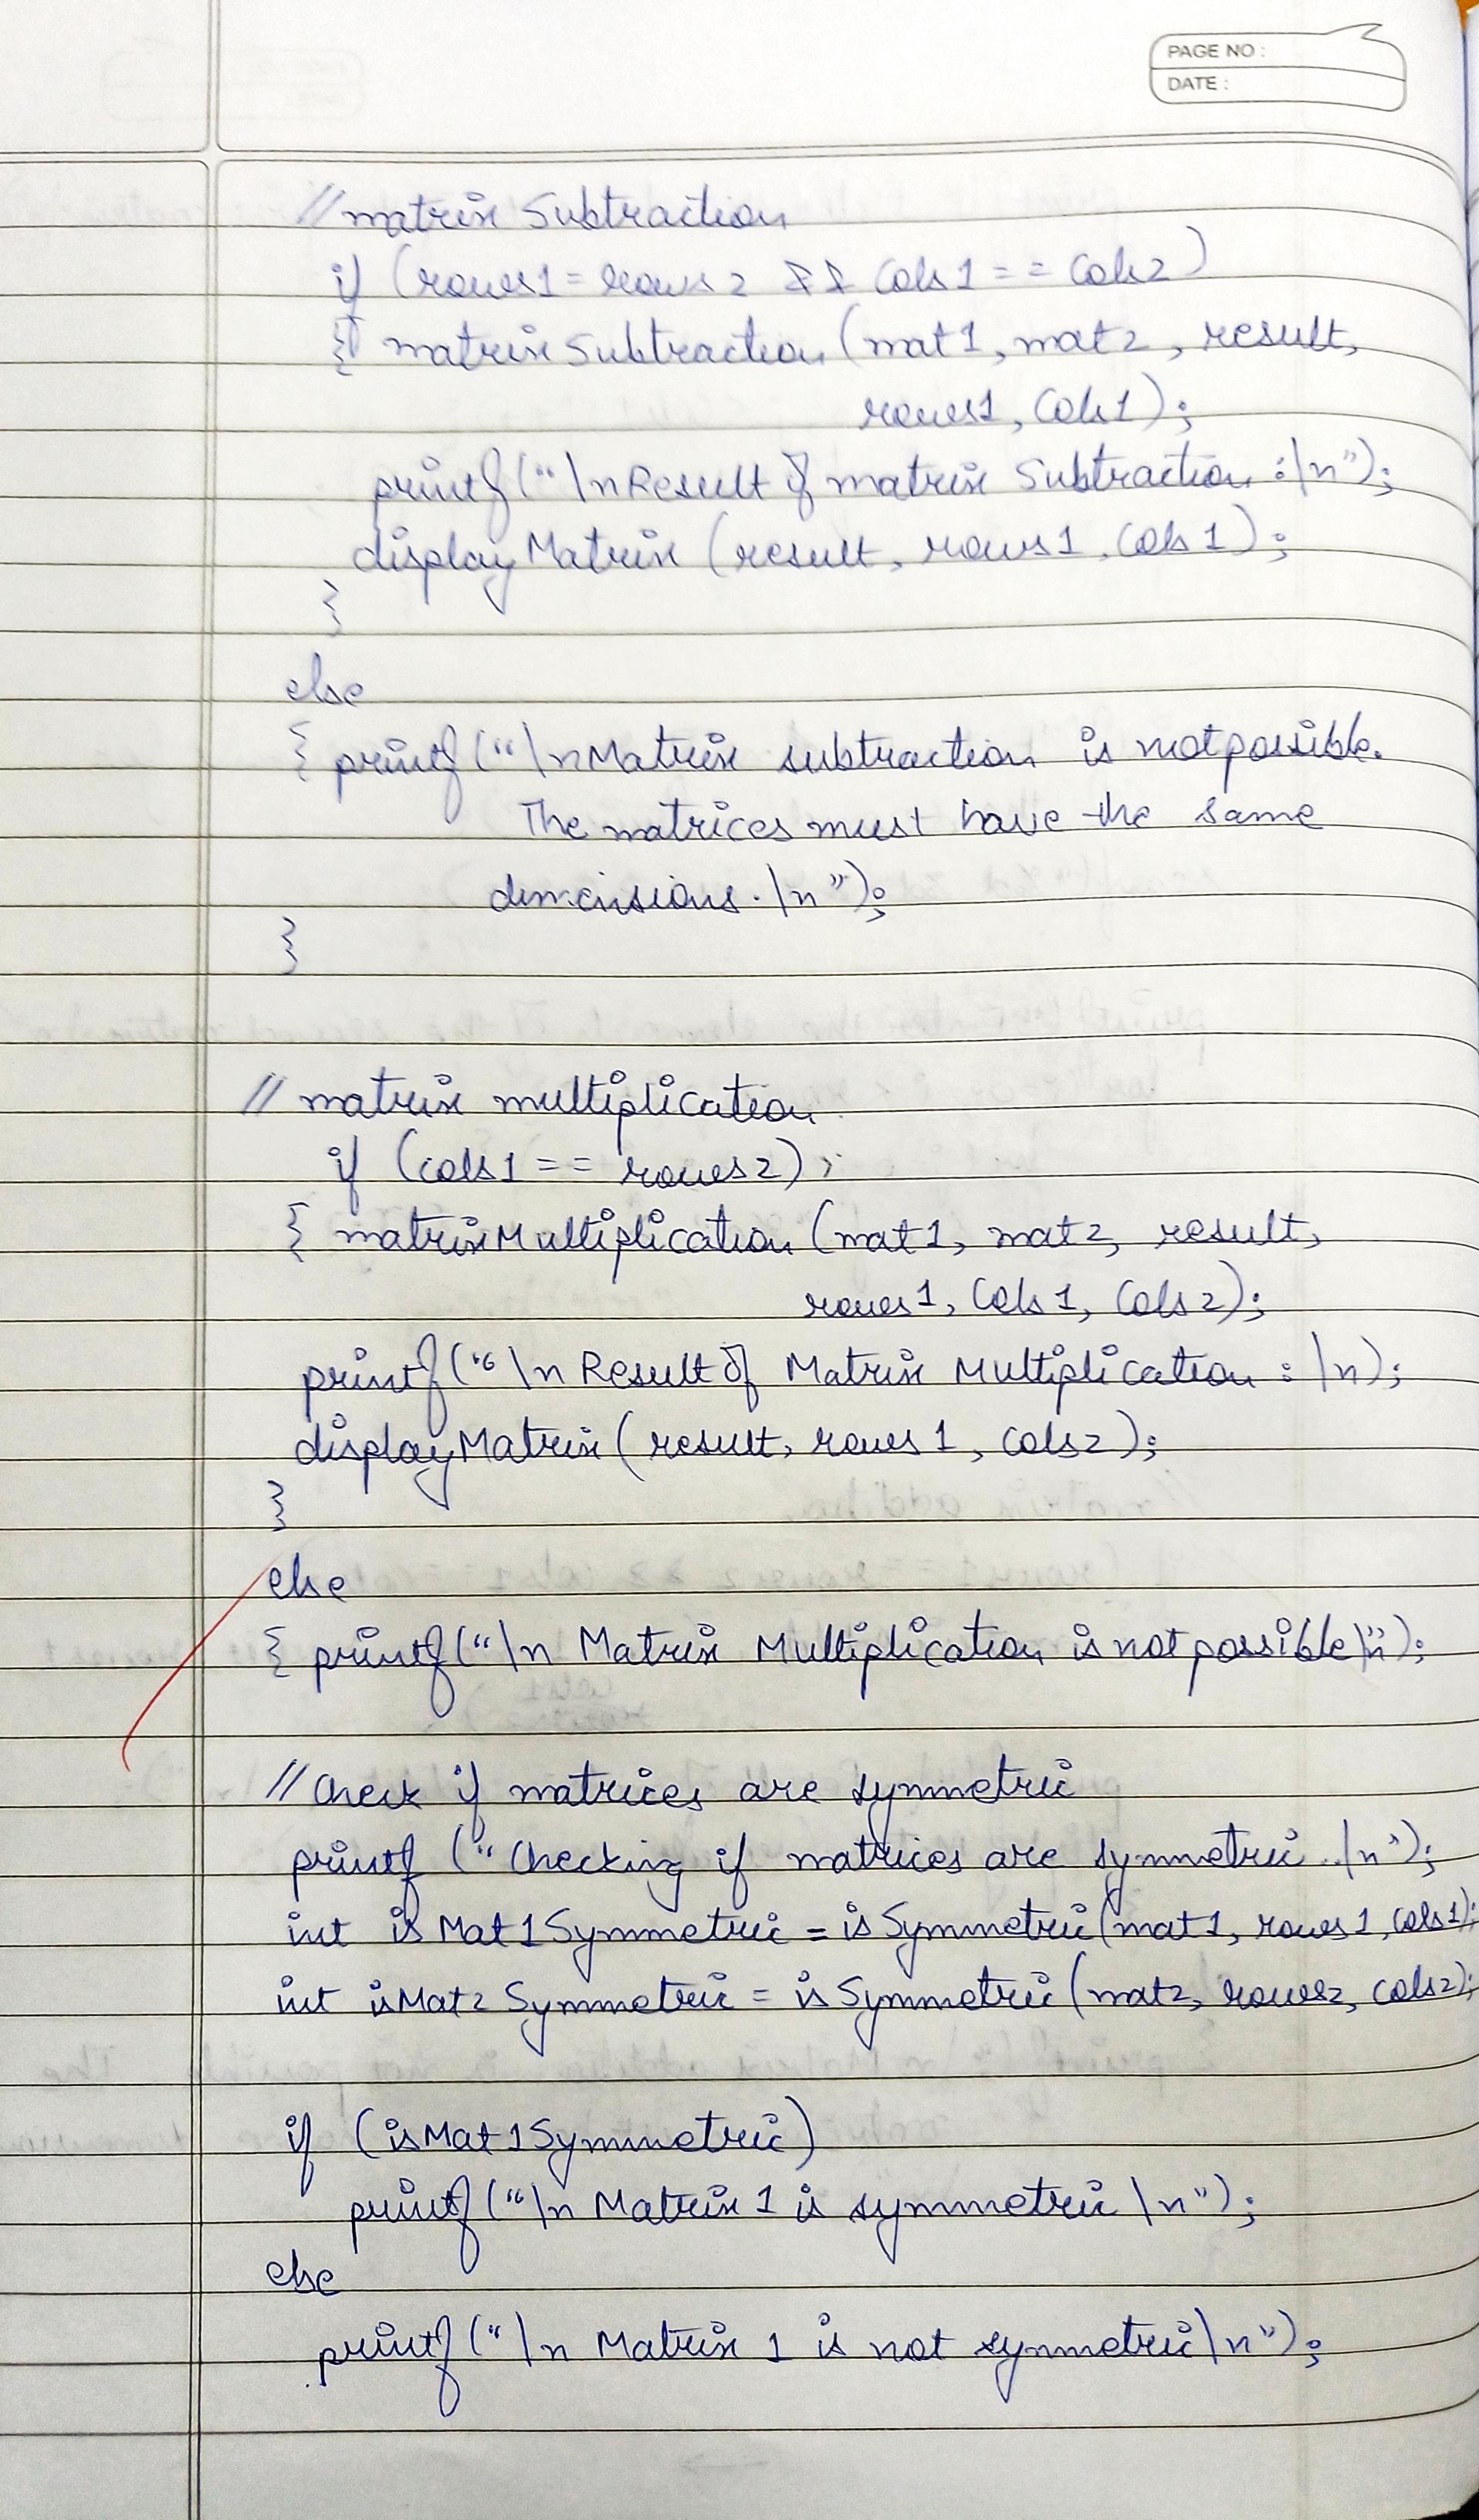 PAGE NO :
DATE :
// matrix Subtraction
if (rows1 = rows2 && Cols1 == Cols2)
{ matrixSubtraction (mat1, mat2, result,
rows1, Cols1);
printf("\nResult of matrix Subtraction :\n");
displayMatrix (result, rows1, Cols1);
}
else
{ printf("\nMatrix subtraction is not possible.
The matrices must have the same
dimensions.\n");
}
// matrix multiplication
if (cols1 == rows2)
{ matrixMultiplication (mat1, mat2, result,
rows1, Cols1, Cols2);
printf("\n Result of Matrix Multiplication : \n);
displayMatrix (result, rows1, cols2);
}
else
{ printf("\n Matrix Multiplication is not possible\n");
// Check if matrices are symmetric
printf ("Checking if matrices are symmetric..\n");
int isMat1Symmetric = isSymmetric(mat1, rows1, cols1);
int isMat2Symmetric = isSymmetric(mat2, rows2, cols2);
if (isMat1Symmetric)
printf("\n Matrix 1 is symmetric \n");
else
printf("\n Matrix 1 is not symmetric\n");